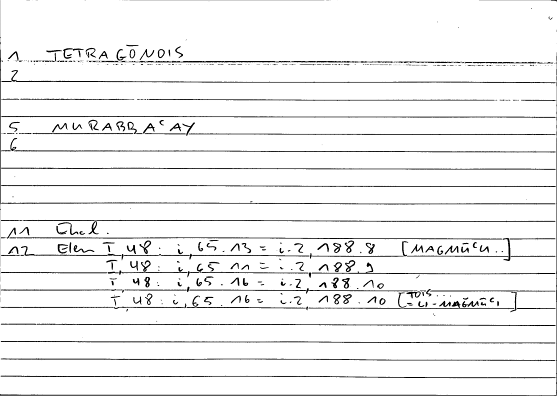 1 TETRAGŌNOIS
2
5 MURABBAʿAY
6
11 Eucl.
12 Elem I, 48: i, 65.13 = i.2, 188.8 [MAǦMŪʿU..]
I, 48: i, 65 11 = i.2, 188.9
I, 48: i, 65.16 = i.2, 188.10
I, 48: i, 65.16 = i.2, 188.10 [TOIS... = LI-MAǦMŪʿI]